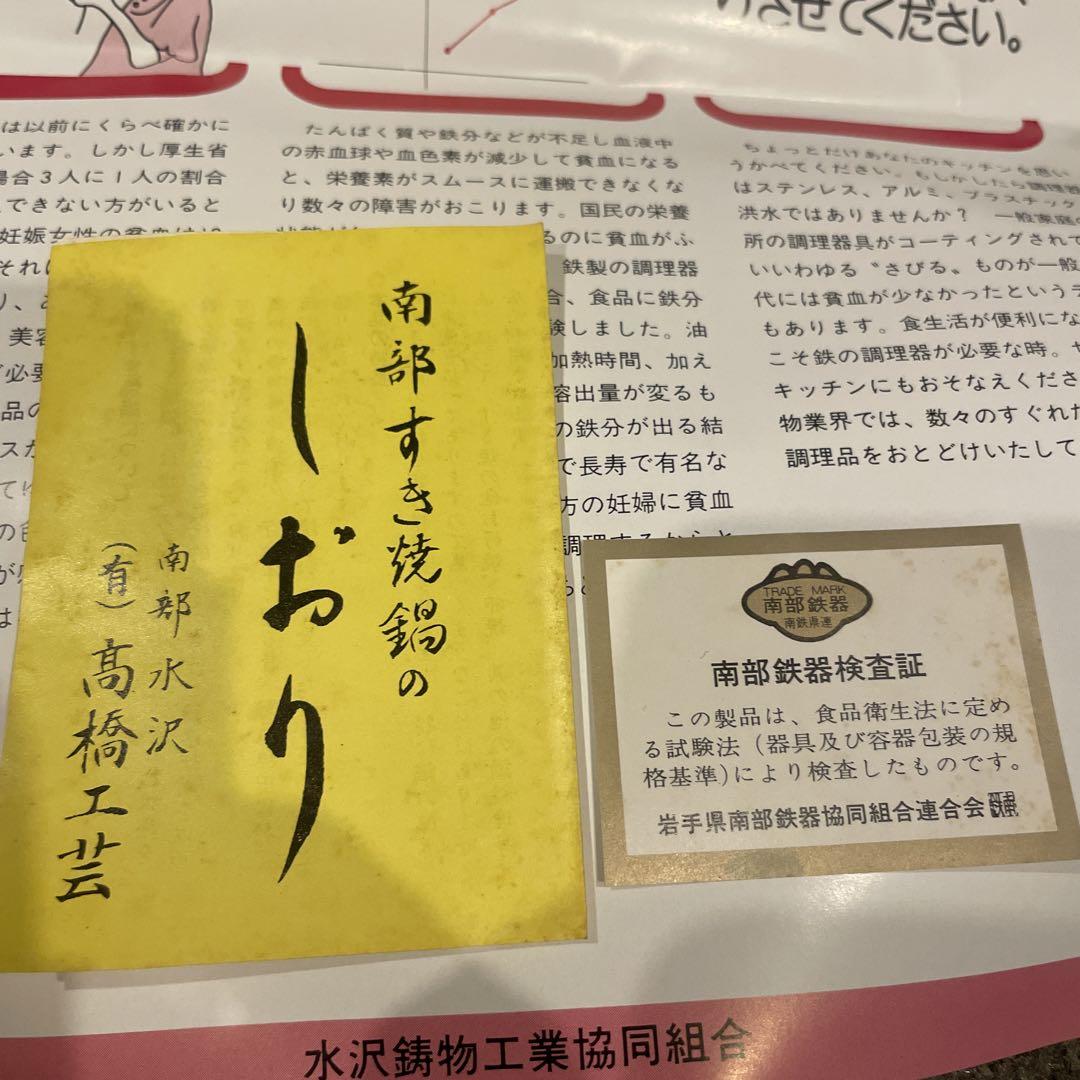 りさせてください。
は以前にくらべ確かに
います。しかし厚生省
場合3人に1人の割合
できない方がいると
妊娠女性の貧血は
それ
美容
必要
品の
たんぱく質や鉄分などが不足し血液中
の赤血球や血色素が減少して貧血になる
と、栄養素がスムースに運搬できなくな
り数々の障害がおこります。国民の栄養
るのに貧血がふ
鉄製の調理器
合、食品に鉄分
験しました。油
加熱時間、加え
容出量が変るも
の鉄分が出る結
で長寿で有名な
方の妊婦に貧血
調理するからと
ちょっとだけあなたのキッチンを思い
うかべてください。もしかしたら調理器
はステンレス、アルミ、プラスチック
洪水ではありませんか? 一般家庭の
所の調理器具がコーティングされて
いいわゆる〝さびる〟ものが一般
代には貧血が少なかったという
もあります。食生活が便利にな
こそ鉄の調理器が必要な時。
キッチンにもおそなえくださ
物業界では、数々のすぐれた
調理品をおとどけいたして
南部すき焼鍋の
しおり
南部水沢
(有)髙橋工芸
TRADE MARK
南部鉄器
南鉄県連
南部鉄器検査証
この製品は、食品衛生法に定め
る試験法(器具及び容器包装の規
格基準)により検査したものです。
岩手県南部鉄器協同組合連合会
水沢鋳物工業協同組合